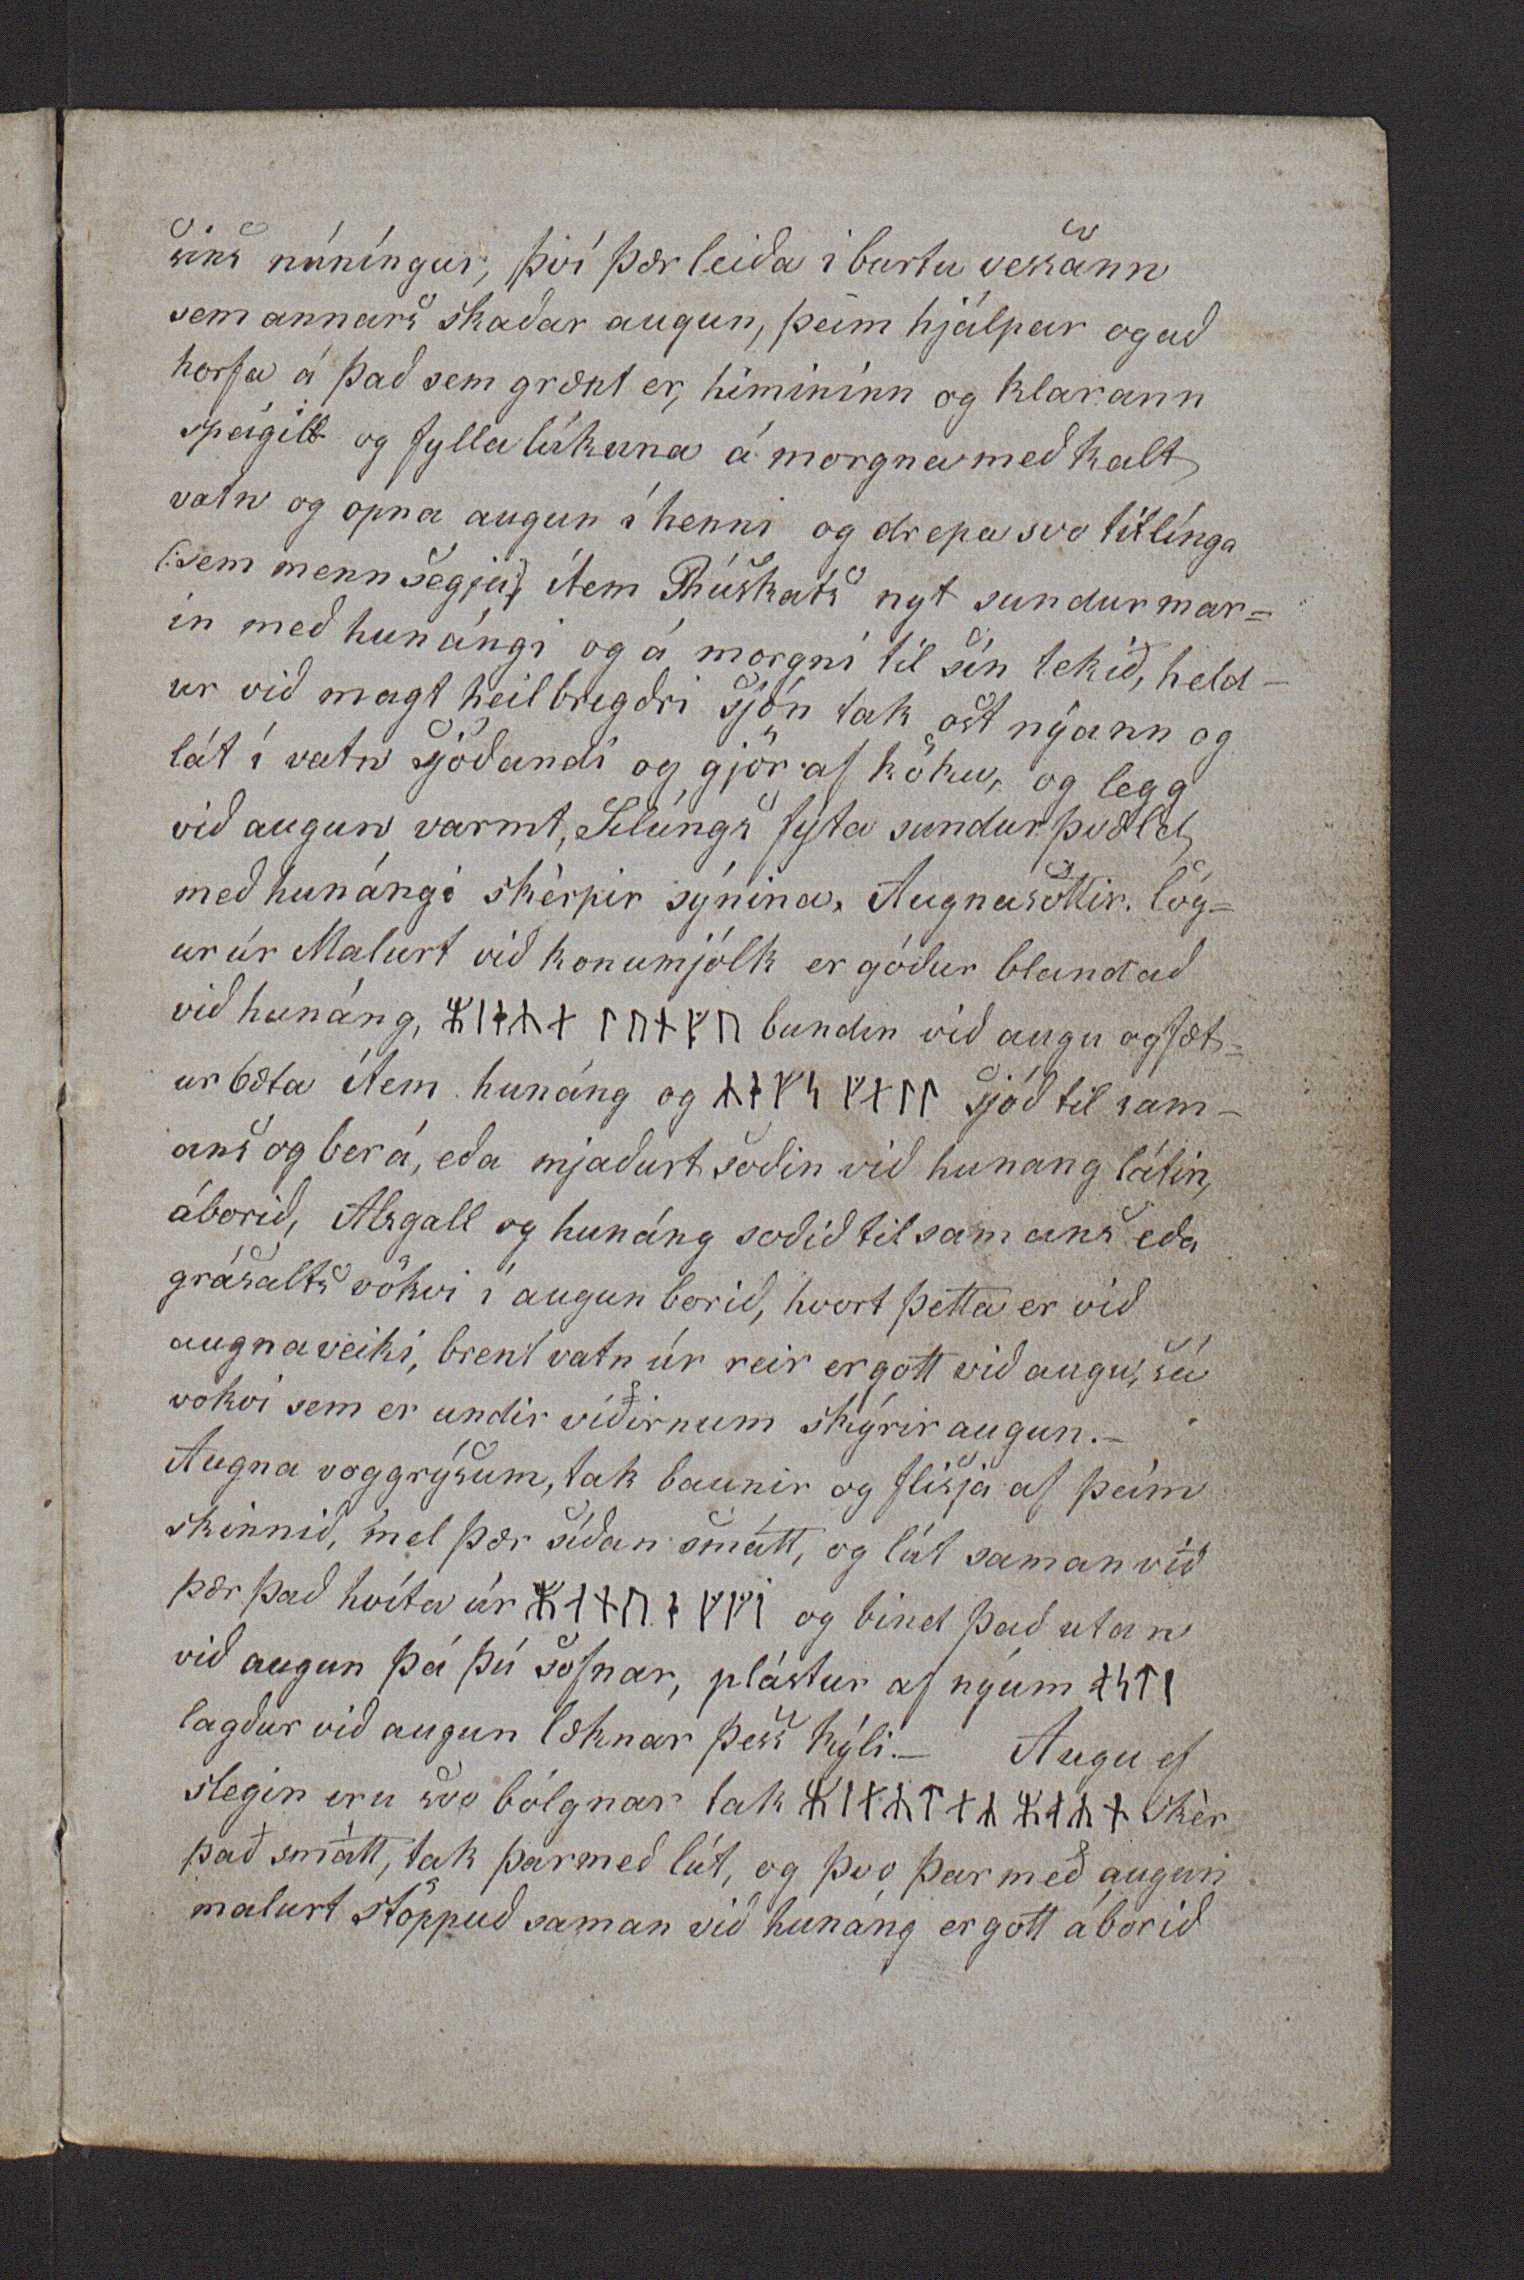 sins núníngur, því þær leiða i burtu vessann
sem annars skaðar augun, þeim hjálpar og að
horfa á það sem grænt er, himininn og klarann
speigil og fylla lúkuna á morgna með kalt
vatn og opna augun í henni og drepa svo titlínga
(:sem menn segja:) ítem Múskats nyt sundurmar=
in með hunángi og á morgni til sín tekið, held-
ur við magt heilbrigðri sjón tak ost nýann og
lát í vatn sjóðandi og gjör af köku, og legg
við augun varmt, Silúngs fýta sundur þvæld
með hunángi skèrpir sýnina. Augnasóttir. lög=
ur úr Malurt við konumjólk er góður blandað
við hunáng, ᛯᛁᚬᛦᚾ ᛚᚢᚾᚵᚢ bundin við augu og fæt=
ur bæta Ítem hunáng og ᛦᚬᚠᛋ ᚵᛆᛚᛚ sjóð til sam-
ans og ber á, eða mjaðurt soðin við hunang látin,
áborið, Alsgall og hunáng soðið til samans eða
grásalts vökvi í augun borið, hvort þetta er við
augnaveiki, brent vatn úr reir er gott við augu, sá
vokvi sem er undir viðirnum skýrir augun.-
Augna voggrýsum, tak baunir og flisja af þeim
skinnið, mel þær síðan smátt, og lát saman við
þær það hvíta úr ᛯᛅᚾᚢ ᚬ ᚵᚵᛁ og bind það utan
við augun þá þú sofnar, plástur af nýum ᚭᛋᛏᛁ
lagður við augun læknar þess kýli.- Augu ef
slegin eru svo bólgnar tak skèr
það smátt, tak þarmeð lút, og þvo þar með augun
malurt stöppuð saman við hunáng er gott áborið